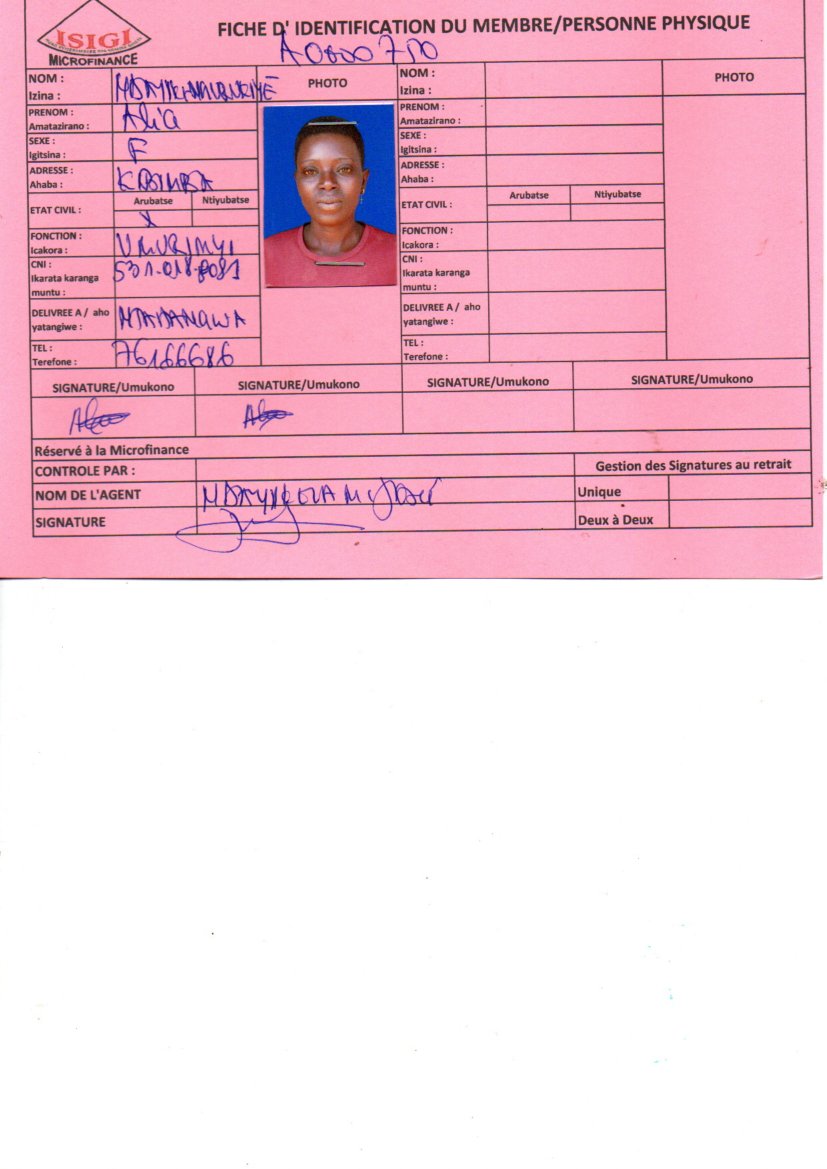 ISIGI
MICROFINANCE
FICHE D' IDENTIFICATION DU MEMBRE/PERSONNE PHYSIQUE
NOM :
Izina :
PHOTO
PRENOM : Alia
Amatazirano :
SEXE : F
Igitsina :
ADRESSE :
Ahaba :
ETAT CIVIL : Arubatse Ntiyubatse
X
FONCTION : UMURIMYI
Icakora :
CNI : 531.018.8081
Ikarata karanga
muntu :
DELIVREE A / aho
yatangiwe :
TEL : 76166686
Terefone :
NOM :
Izina :
PHOTO
PRENOM :
Amatazirano :
SEXE :
Igitsina :
ADRESSE :
Ahaba :
ETAT CIVIL : Arubatse Ntiyubatse
FONCTION :
Icakora :
CNI :
Ikarata karanga
muntu :
DELIVREE A / aho
yatangiwe :
TEL :
Terefone :
SIGNATURE/Umukono SIGNATURE/Umukono SIGNATURE/Umukono SIGNATURE/Umukono
Réservé à la Microfinance
CONTROLE PAR : Gestion des Signatures au retrait
NOM DE L'AGENT Unique
SIGNATURE Deux à Deux